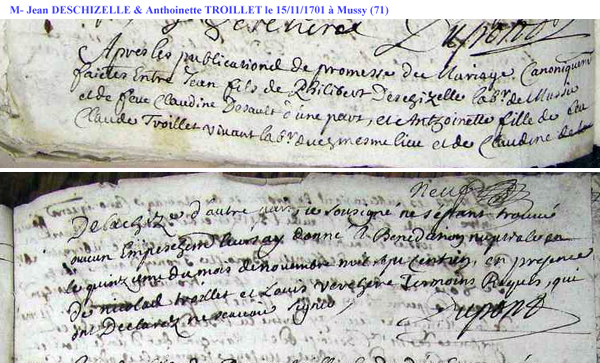 M- Jean DESCHIZELLE & Anthoinette TROILLET le 15/11/1701 à Mussy (71)
Dupont
Apres les publications de promesse de Mariage Canoniquem
faictes Entre Jean fils de Philibert Deschizelle labr de Mussie
et de feue Claudine Desault d'une part, et Antoinette fille de feu
Claude Troillet vivant labr du mesme lieu et de Claudine de
d'autre part, je soubsigné ne s'estant trouué
aucun Empeschem leur ay donné la Benediction nuptiale
le quinzieme du mois de novembre mil sept cent un, en presence
de nicolas troillet et Louis Tesmoins Requis, qui
ont Declarez ne scauoir signer
Dupont